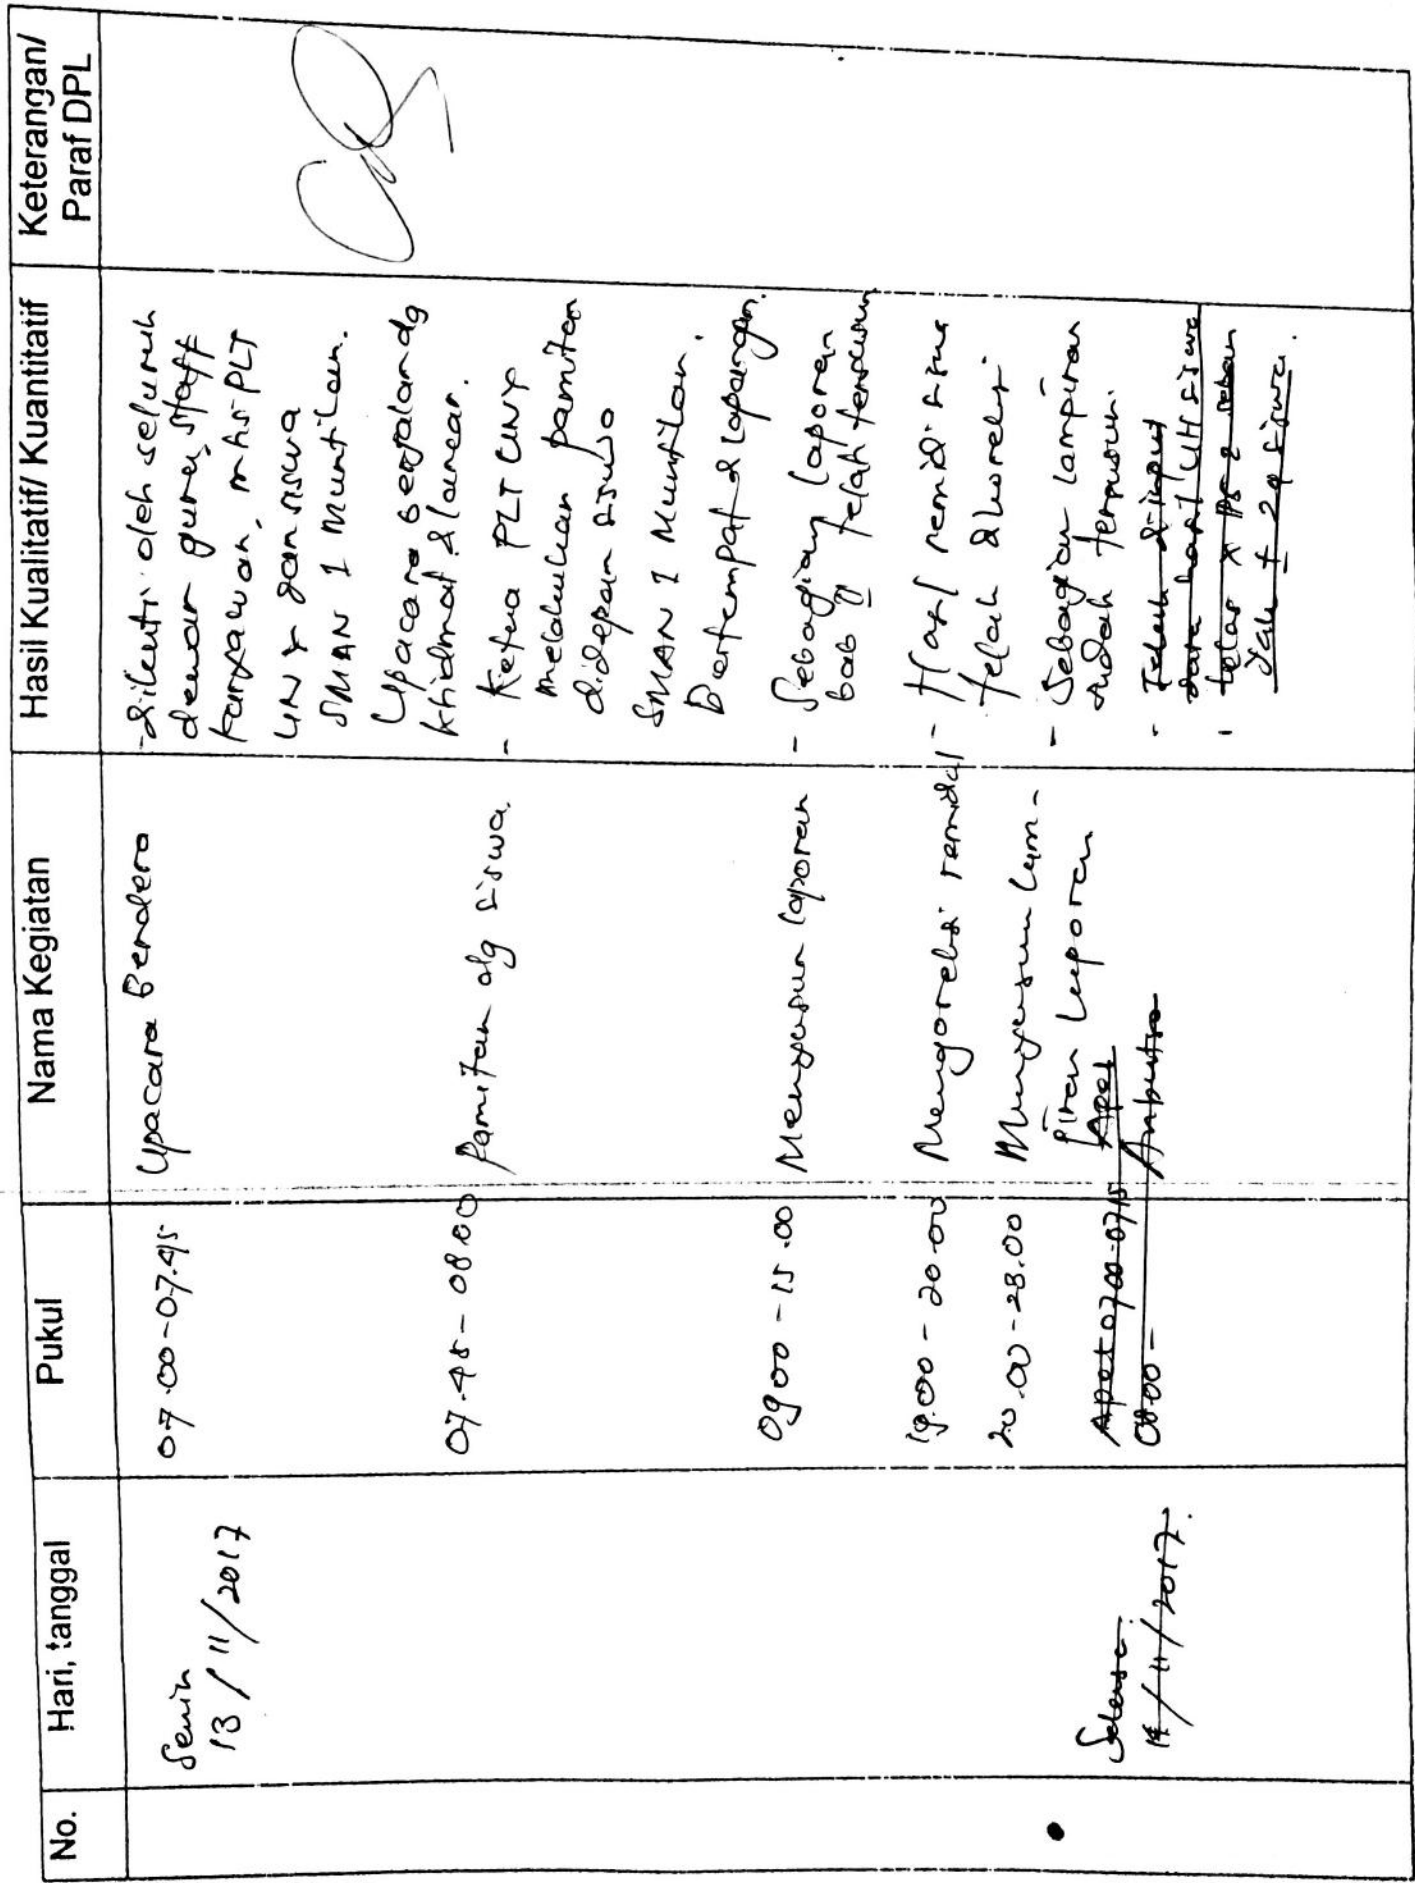 No.
Hari, tanggal
Pukul
Nama Kegiatan
Hasil Kualitatif/ Kuantitatif
Keterangan/
Paraf DPL
Senin
13 / 11 / 2017
07.00-07.45
Upacara Bendera
- diikuti oleh seluruh
dewan guru, staff
karyawan, mhs PLT
UNY dan siswa
SMAN 1 Muntilan.
Upacara berjalan dg
khidmat & lancar.
07.45 - 08.00
Pamitan dg siswa.
- Ketua PLT UNY
melakukan pamitan
didepan siswa
SMAN 1 Muntilan.
Bertempat d lapangan.
0900 - 15.00
Menyusun laporan
- Sebagian laporan
bab II telah tersusun
19.00 - 20.00
Mengoreksi remidi
- Hasil remidi siswa
telah dikoreksi
20.00 - 23.00
Menyusun lam-
piran laporan
- Sebagian lampiran
sudah tersusun.
Selasa
14 / 11 / 2017.
Apel 0700-0715
Apel
08.00 -
- Telah diinput
data hasil UH siswa
kelas X
± 29 siswa.